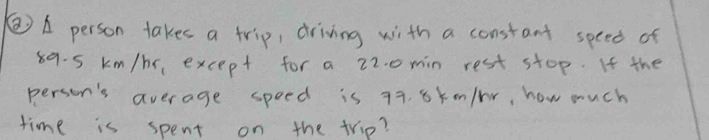 ② A person takes a trip, driving with a constant speed of
89.5 km/hr, except for a 22.0 min rest stop. If the
person's average speed is 77.8 km/hr, how much
time is spent on the trip?